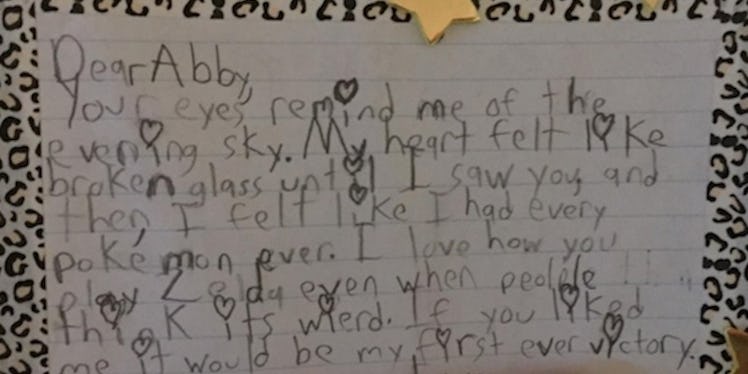 Dear Abby,
Your eyes remind me of the
evening sky. My heart felt like
broken glass until I saw you, and
then, I felt like I had every
pokémon ever. I love how you
play Zelda even when peolple
think it's wierd. If you liked
me it would be my first ever victory.